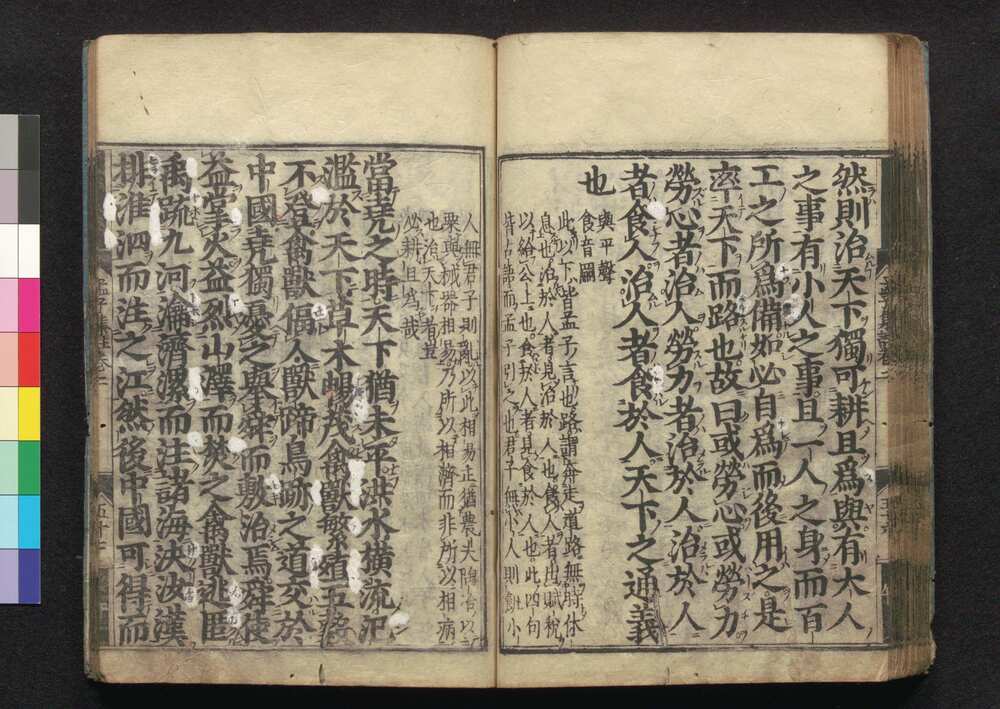 然則治天下獨可耕且爲與有大人
之事有小人之事且一人之身而百
工之所爲備如必自爲而後用之是
率天下而路也故曰或勞心或勞力
勞心者治人勞力者治於人治於人
者食人治人者食於人天下之通義
也
與平聲
食音嗣
此以下皆孟子言也路謂奔走道路無時休
息也治於人者見治於人也食人者出賦稅
以給公上也食於人者見食於人也此四句
皆古語而孟子引之也君子無小人則飢小
人無君子則亂以此相易正猶農夫陶冶以
粟與械器相易乃所以相濟而非所以相病
也治天下者豈
必耕且爲哉
當堯之時天下猶未平洪水橫流氾
濫於天下草木暢茂禽獸繁殖五穀
不登禽獸偪人獸蹄鳥跡之道交於
中國堯獨憂之舉舜而敷治焉舜使
益掌火益烈山澤而焚之禽獸逃匿
禹疏九河瀹濟漯而注諸海決汝漢
排淮泗而注之江然後中國可得而